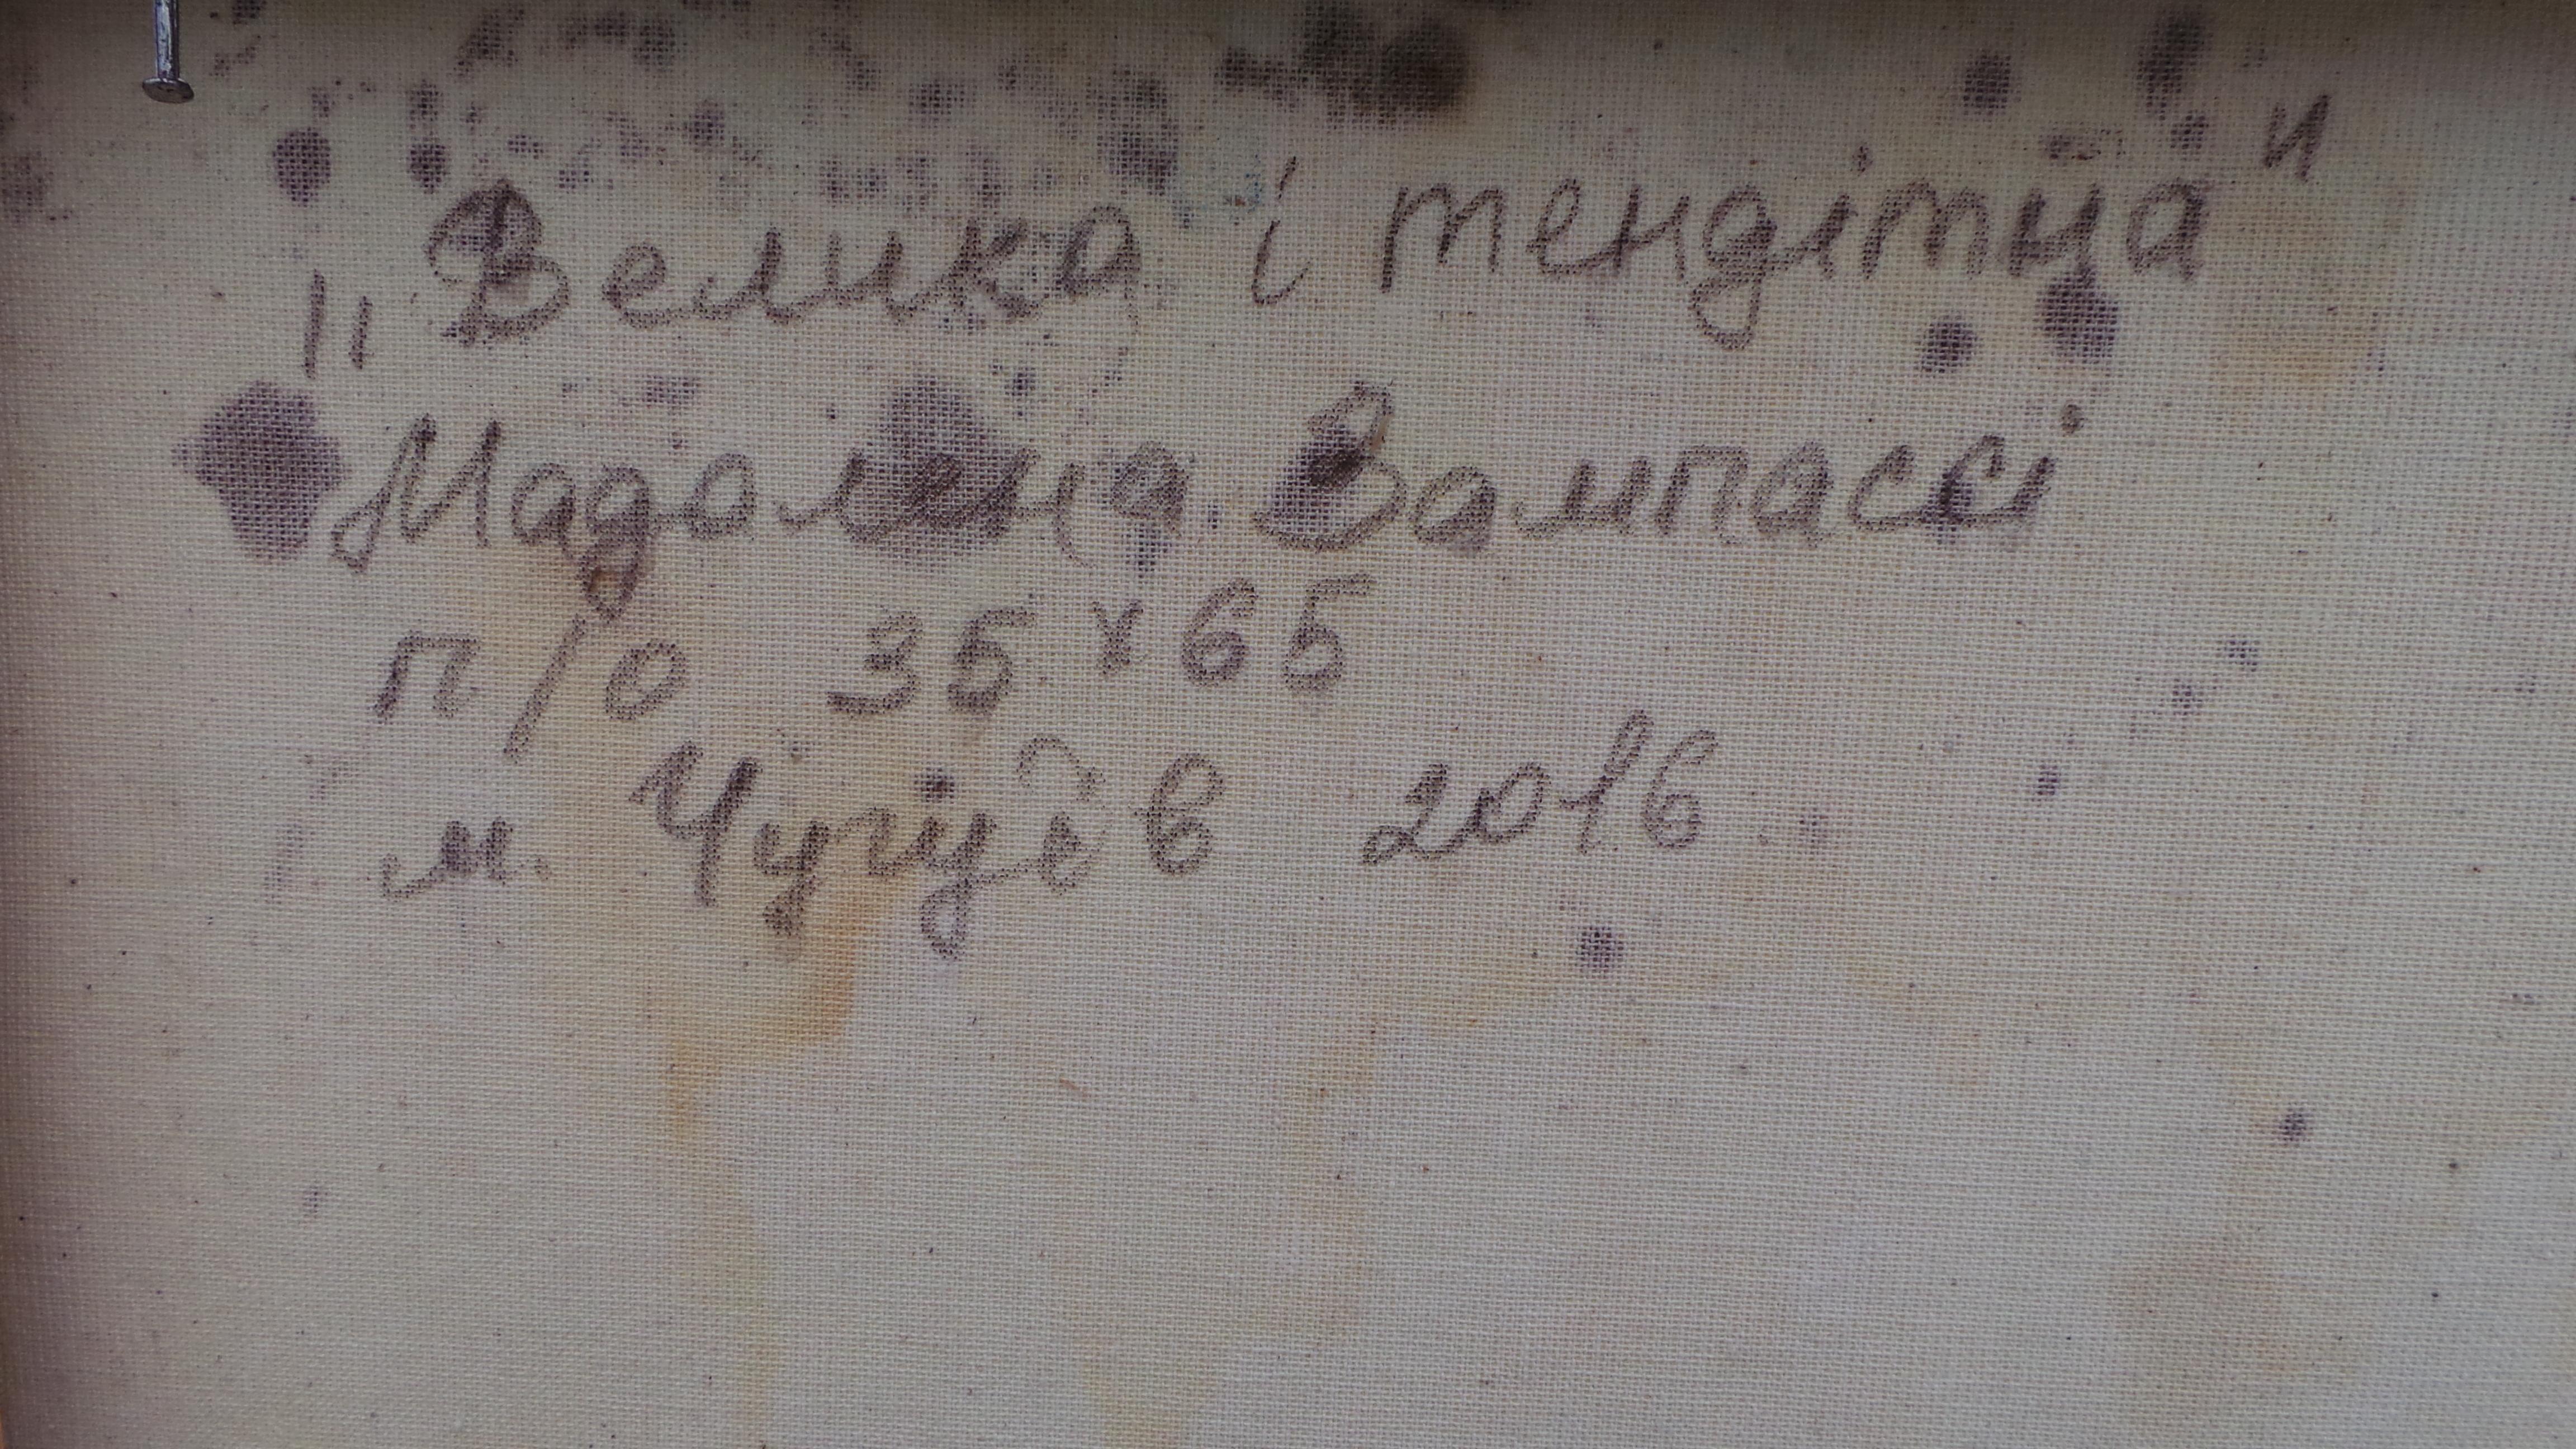 „Велика і тендітна"
Мадалена Вампассі
п/о 35х65
м. Чугуєв 2016